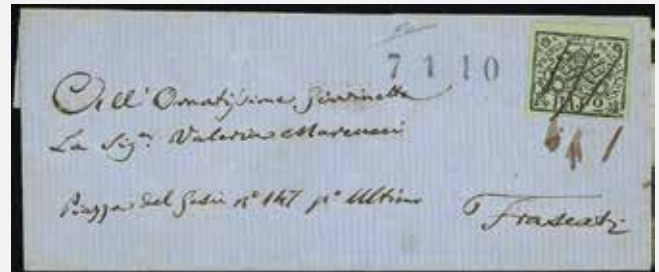 7 1 10
BAJ
All' Ornatissima
La Sig.ra Valeria Marcucci
Piazza del Gesù n° 147 p° Ultimo
Frascati